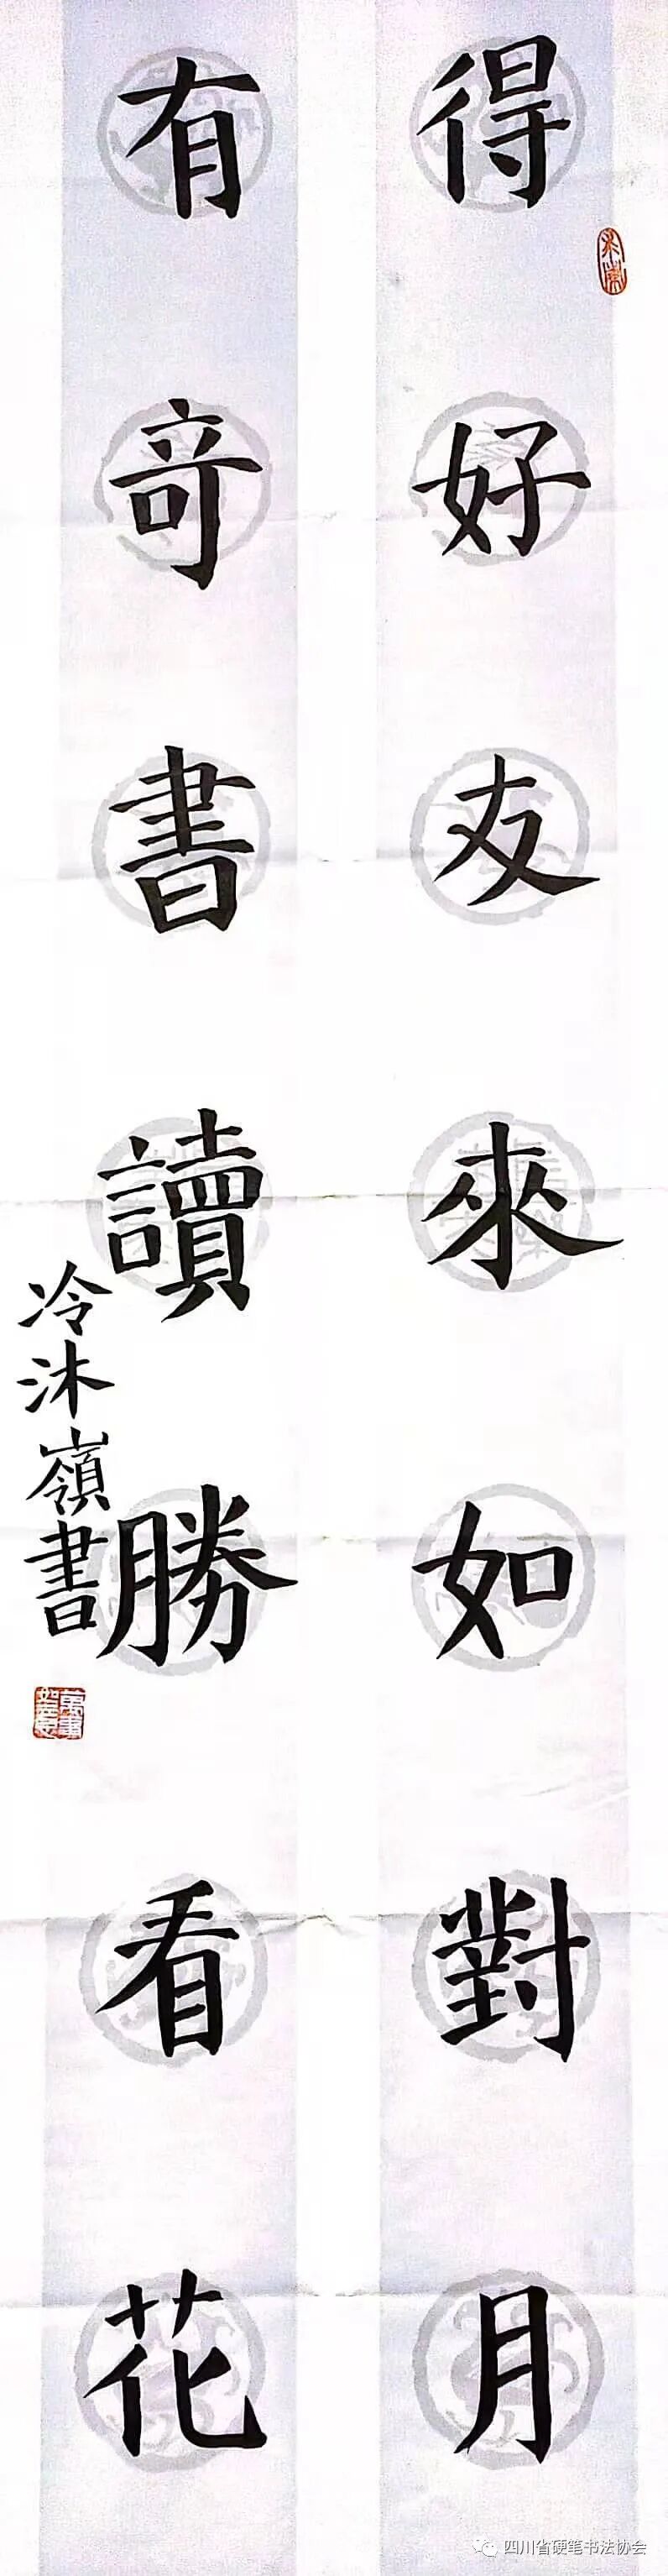 得好友來如對月
有竒書讀勝看花
冷沐嶺書
四川省硬笔书法协会